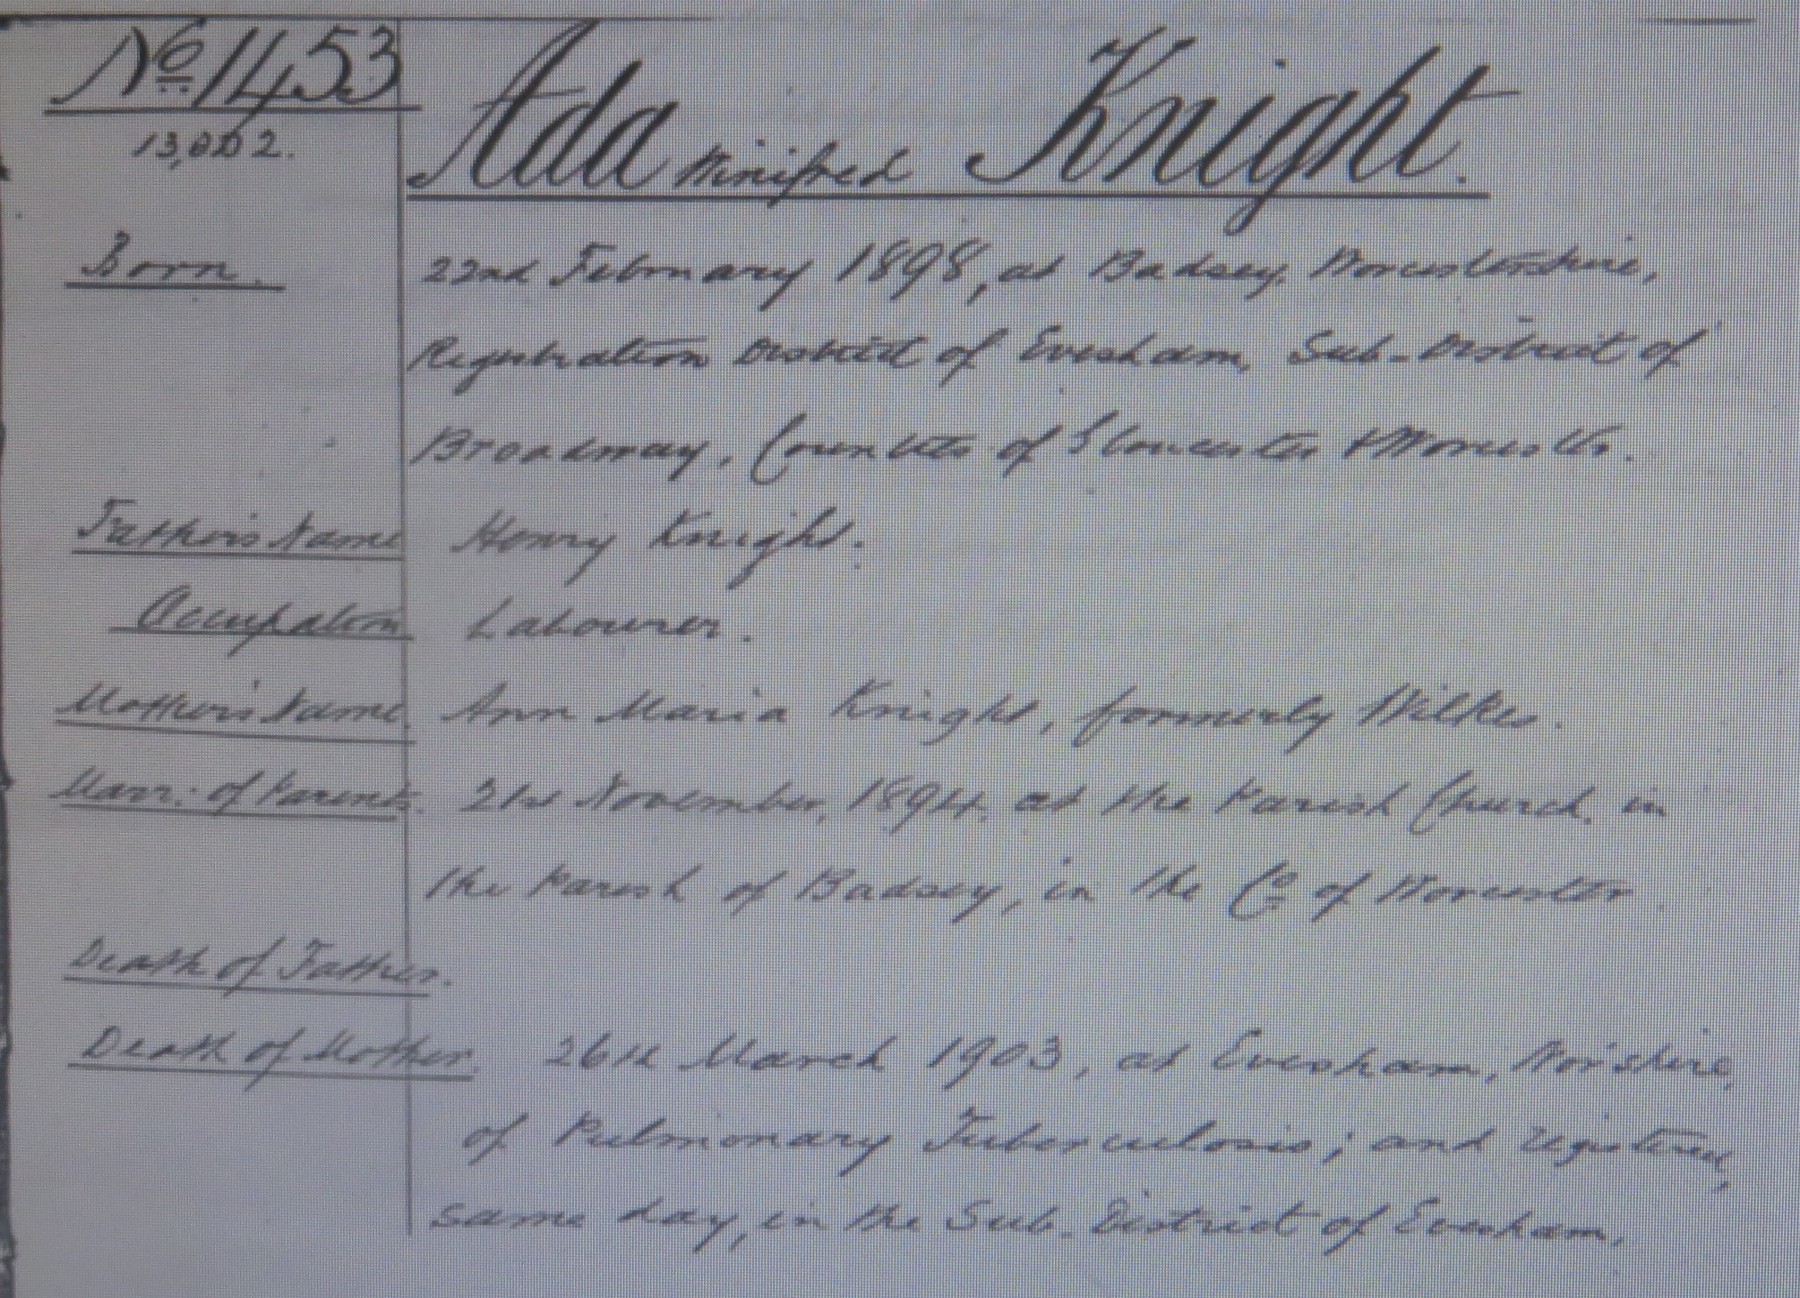 No 1453 Ada Winifred Knight.
13,002.
Born. 22nd February 1898, at Badsey, Worcestershire,
Registration District of Evesham, Sub-District of
Broadway, Counties of Gloucester & Worcester.
Father's Name Henry Knight.
Occupation Labourer.
Mother's Name. Ann Maria Knight, formerly Wilkes.
Marr: of Parents. 21st November, 1894, at the Parish Church, in
the Parish of Badsey, in the Co of Worcester.
Death of Father.
Death of Mother. 26th March 1903, at Evesham, Wor'shire,
of Pulmonary Tuberculosis; and registered,
same day, in the Sub-District of Evesham,